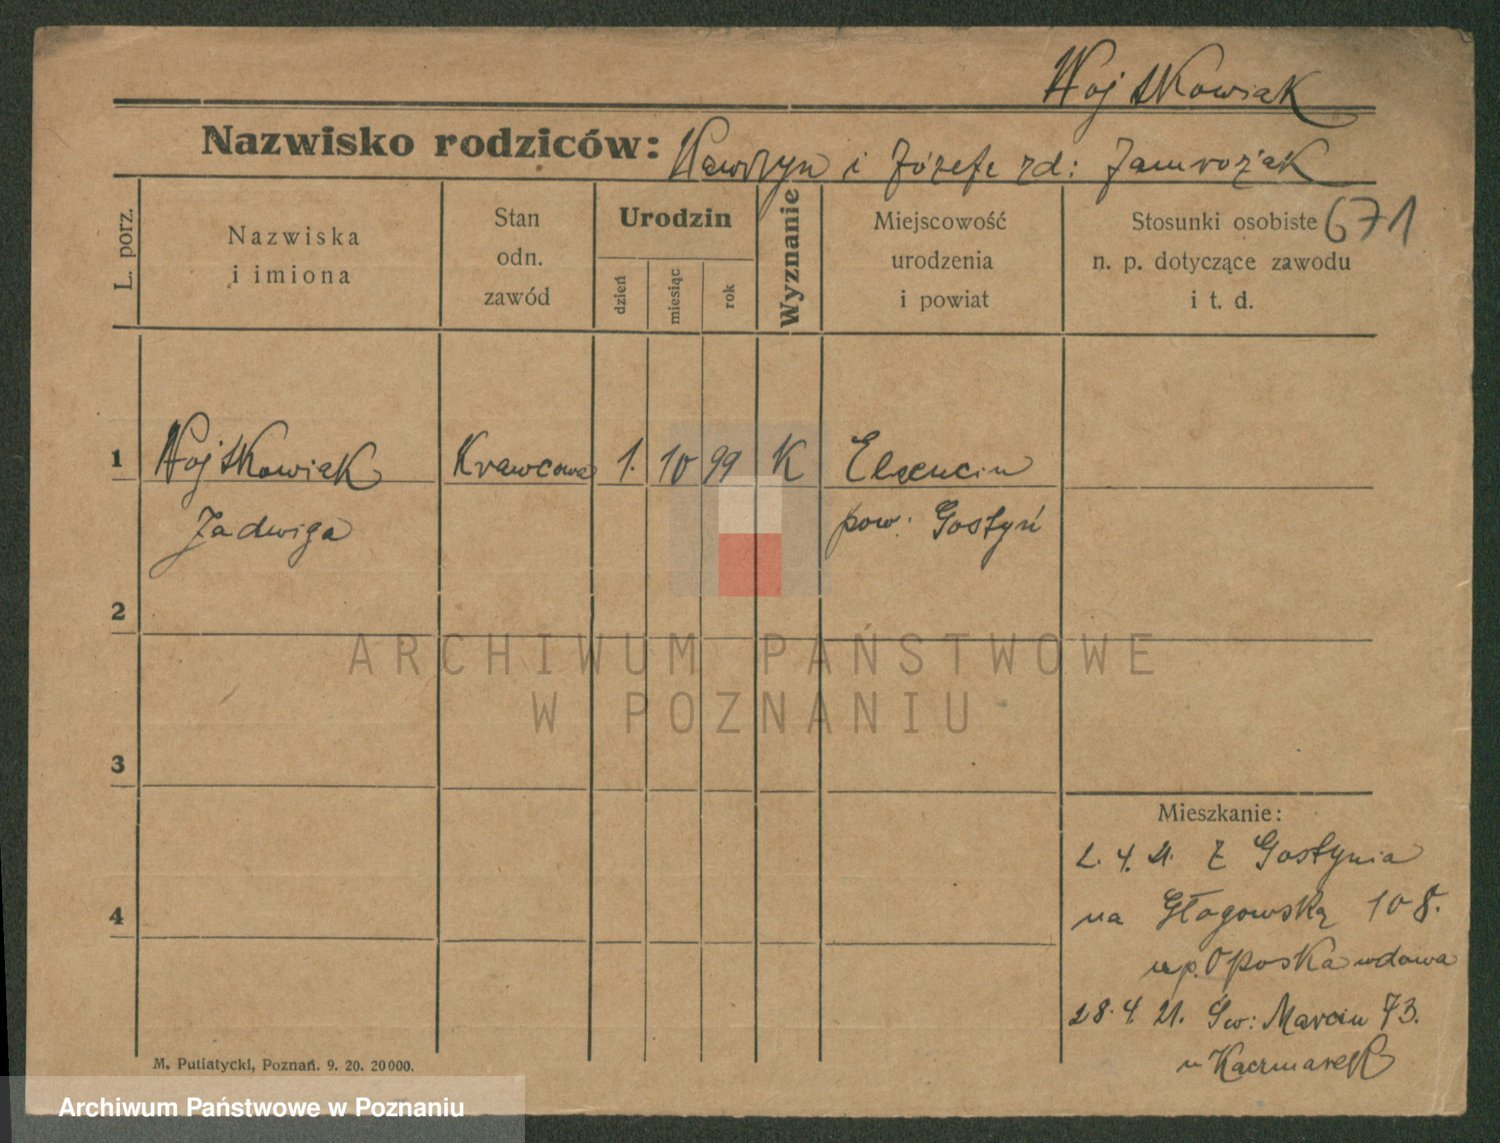 Wojtkowiak
Nazwisko rodziców: Wawrzyn i Józefe zd: Jamrożak
L. porz.
Nazwiska
i imiona
Stan
odn.
zawód
Urodzin
dzień
miesiąc
rok
Wyznanie
Miejscowość
urodzenia
i powiat
Stosunki osobiste
n. p. dotyczące zawodu
i t. d.
671
1 Wojtkowiak Krawcowa 1. 10 99 K
Jadwiga pow: Gostyń
2
3
4
Mieszkanie:
2. 4. 21. Z Gostynia
na Głogowską 108.
wdowa
28. 4. 21. Św: Marcin 73.
u Kaczmarek
M. Putiatycki, Poznań. 9. 20. 20000.
ARCHIWUM PAŃSTWOWE
W POZNANIU
Archiwum Państwowe w Poznaniu